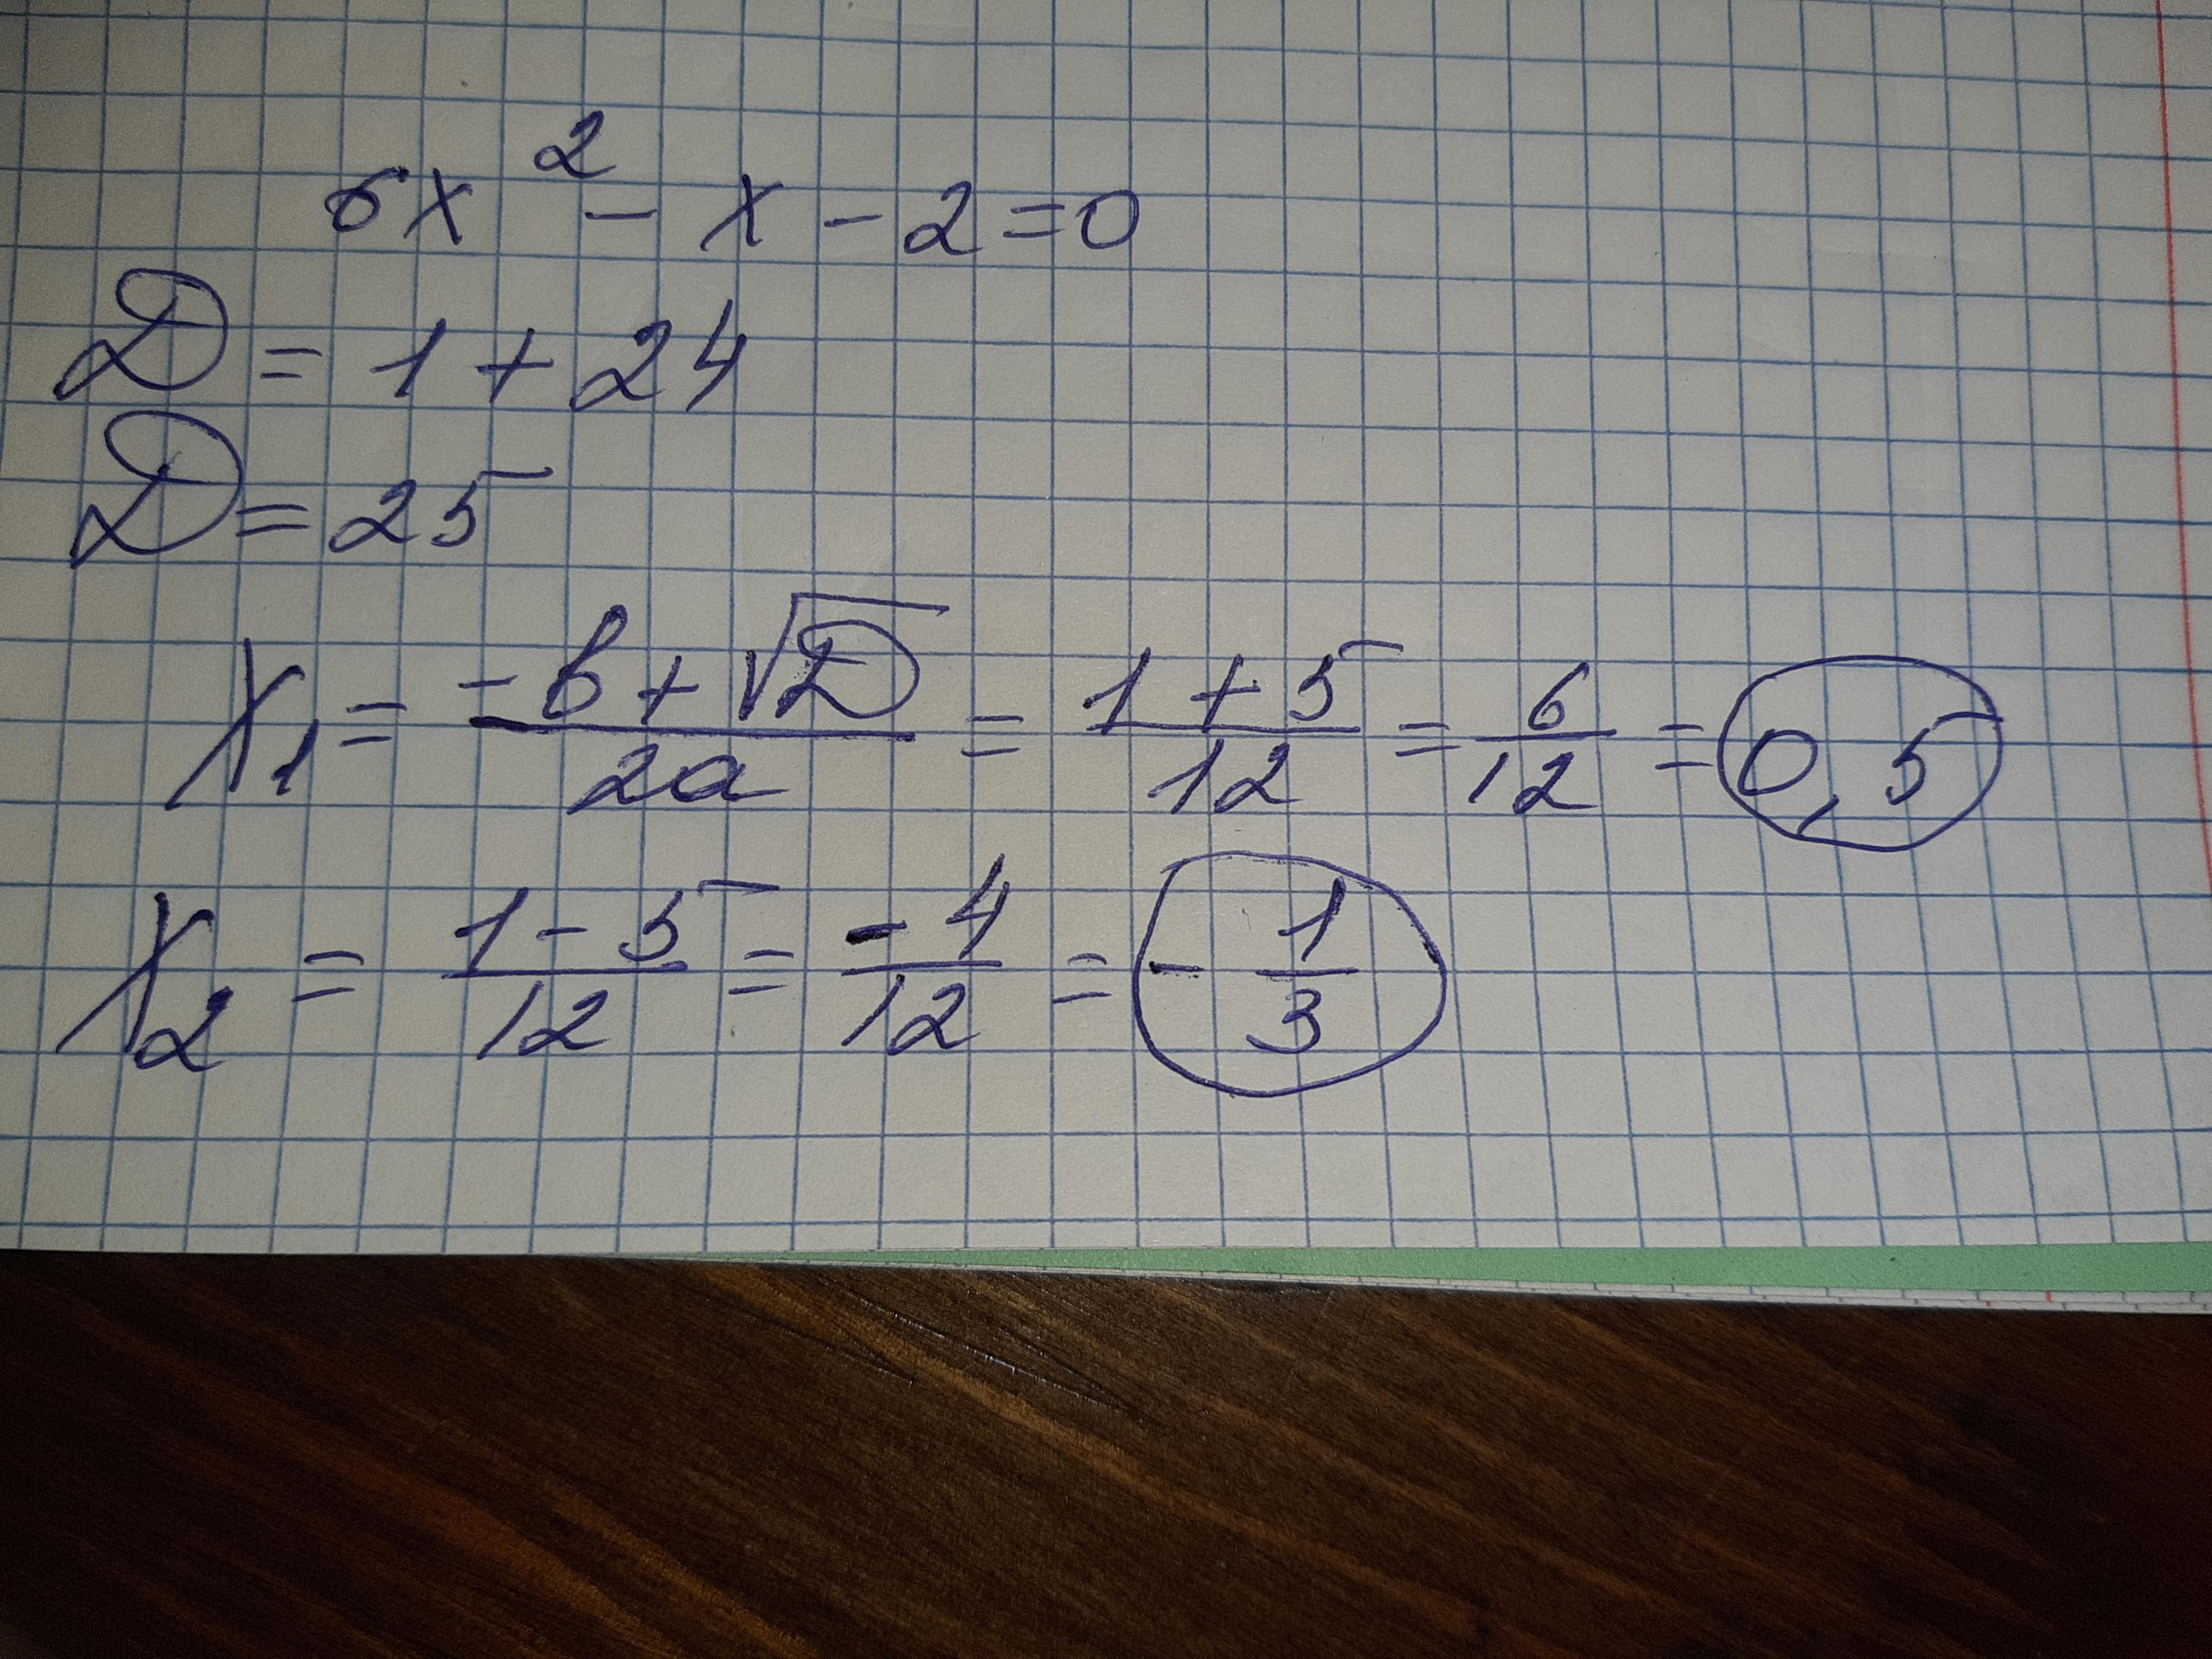 6x² - x - 2 = 0
D = 1 + 24
D = 25
X₁ = (-b + √D)/2a = (1 + 5)/12 = 6/12 = 0,5
X₂ = (1 - 5)/12 = -4/12 = -1/3